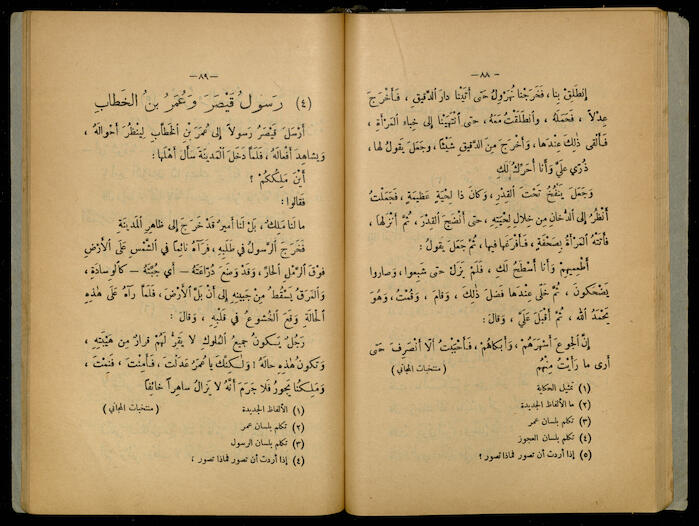 — ٨٨ —
إنطلِقْ بنا، فَخَرَجْنا نُهَرْوِلُ حَتى أتَيْنا دارَ الدَّقيقِ، فَأَخْرَجَ
عِدْلاً، فَحَمَلَهُ، وانْطَلَقْتُ مَعَهُ، حَتى انْتَهَيْنا إلى خِباءِ المَرْأةِ،
فَأَلقى ذٰلِكَ عِنْدَها، وَأَخْرَجَ مِنَ الدَّقيقِ شَيْئاً، وجَعَلَ يَقولُ لها:
ذُرّي عَلَيَّ وَأنا أُحَرِّكُ لَكِ
وَجَعَلَ يَنْفُخُ تَحْتَ القِدْرِ، وَكانَ ذا لِحْيَةٍ عَظيمَةٍ، فَجَعَلْتُ
أَنْظُرُ إلى الدُّخانِ مِن خِلالِ لِحْيَتِهِ، حَتى أَنْضَجَ القِدْرَ، ثُمَّ أَنْزَلَها،
فَأتَتْهُ المَرْأةُ بِصَحْفَةٍ، فَأَفْرَغَها فيها، ثُمَّ جَعَلَ يَقولُ:
أَطْعِميهِمْ وَأنا أَسْطَحُ لَكِ، فَلَمْ يَزَلْ حتى شبعوا، وَصاروا
يَضْحَكونَ، ثُمَّ خَلّى عِنْدَها فَضْلَ ذٰلِكَ، وَقامَ، وَقُمْتُ، وَهُوَ
يَحْمَدُ اللهَ، ثُمَّ أَقْبَلَ عَلَيَّ، وَقالَ:
إنَّ الجوعَ أَسْهَرَهُمْ، وَأَبكاهُمْ، فَأَحْبَبْتُ أَلّا أَنْصَرِفَ حَتى
أرى ما رَأَيْتُ مِنْهُم (منتخبات المجاني)
(١) تمثيل الحكاية
(٢) ما الألفاظ الجديدة
(٣) تكلم بلسان عمر
(٤) تكلم بلسان العجوز
(٥) إذا أردت أن تصور فماذا تصور؟
— ٨٩ —
(٤) رَسولُ قَيْصَرَ وَعُمَرُ بنُ الخَطابِ
أَرْسَلَ قَيْصَرُ رَسولاً إلى عُمَرَ بْنِ الخَطّابِ لِيَنْظُرَ أَحْوالَهُ،
وَيُشاهِدَ أَفْعالَهُ، فَلَمّا دَخَلَ المَدينَةَ سَأَلَ أَهْلَها:
أَيْنَ مَلِكُكُمْ؟
فَقالوا:
ما لَنا مَلِكٌ، بَلْ لَنا أَميرٌ قَدْ خَرَجَ إلى ظاهِرِ المَدينَةِ
فَخَرَجَ الرَّسولُ في طَلَبِهِ، فَرَآهُ نائِماً في الشَّمْسِ عَلى الأَرْضِ
فَوْقَ الرَّمْلِ الحارِّ، وَقَدْ وَضَعَ دُرّاعَتَهُ — أي جُبَّتَهُ — كالوِسادَةِ،
وَالعَرَقُ يَسْقُطُ مِنْ جَبينِهِ إلى أَنْ بَلَّ الأَرْضَ، فَلَمّا رَآهُ عَلى هٰذِهِ
الحالَةِ وَقَعَ الخُشوعُ في قَلْبِهِ، وَقالَ:
رَجُلٌ يَكونُ جَميعُ المُلوكِ لا يَقِرُّ لَهُمْ قَرارٌ مِنْ هَيْبَتِهِ،
وَتَكونُ هٰذِهِ حالَهُ! وَلٰكِنَّكَ يا عُمَرُ عَدَلْتَ، فَأَمِنْتَ، فَنِمْتَ،
وَمَلِكُنا يَجورُ فَلا جَرَمَ أَنَّهُ لا يَزالُ ساهِراً خائِفاً
(١) الألفاظ الجديدة (منتخبات المجاني)
(٢) تكلم بلسان عمر
(٣) تكلم بلسان الرسول
(٤) إذا أردت أن تصور فماذا تصور،